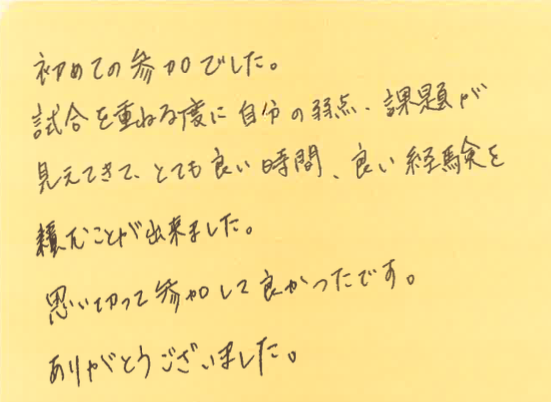 初めての参加でした。
試合を重ねる度に自分の弱点、課題が
見えてきて、とても良い時間、良い経験を
積むことが出来ました。
思い切って参加して良かったです。
ありがとうございました。